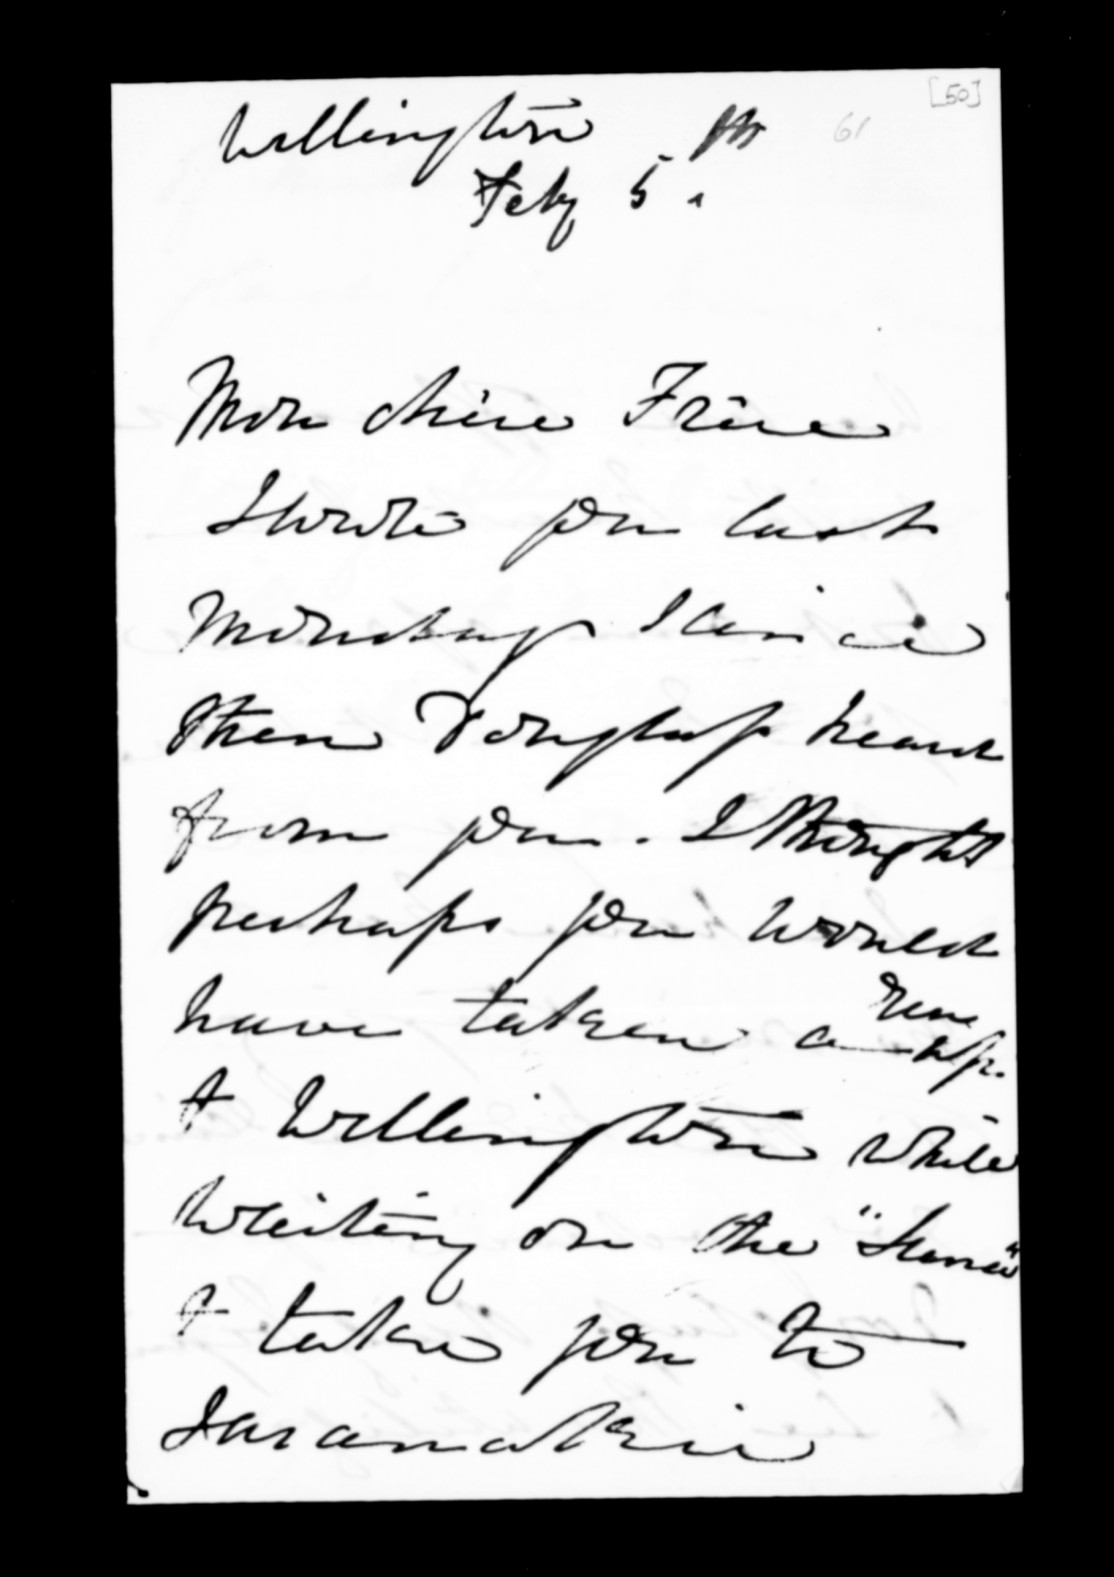 [50]
61
Wellington
Feby 5th.
Mon chère Frère
I wrote you last
Monday Since
then Douglass heard
from you. I thought
perhaps you would
have taken a run up.
to Wellington while
waiting on the "Luna"
to take you to
Taranakie